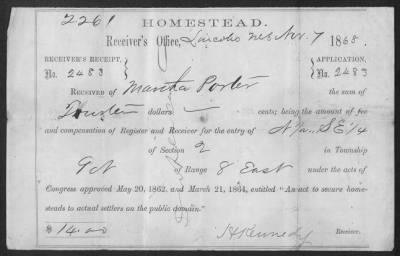 2261
HOMESTEAD.
Receiver's Office, Lincoln Neb Nov. 7 1868.
RECEIVER'S RECEIPT, APPLICATION,
No. 2483 No. 2483
RECEIVED OF Martha Porter the sum of
dollars — cents; being the amount of fee
and compensation of Register and Receiver for the entry of SE 1/4
of Section 2 in Township
9 N of Range 8 East under the acts of
Congress approved May 20, 1862, and March 21, 1864, entitled "An act to secure home-
steads to actual settlers on the public domain."
$ 14.00 Kennedy Receiver.